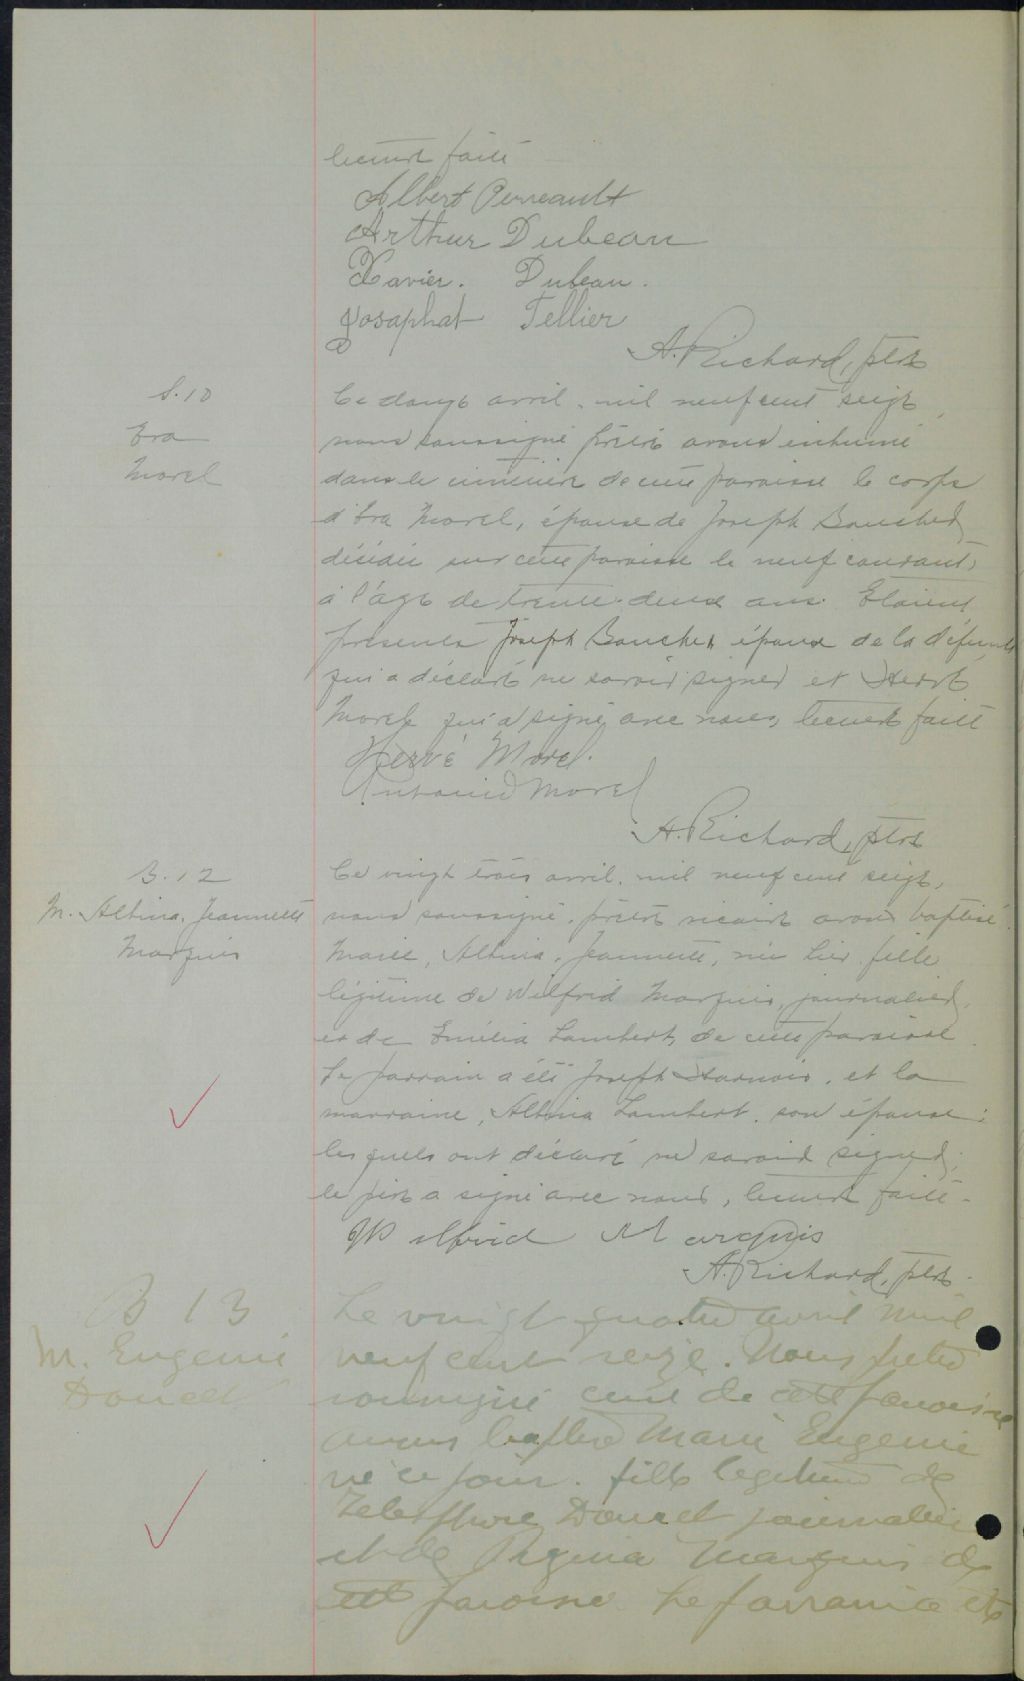 lecture faite
Albert Perreault
Arthur Dubeau
Xavier. Dubeau.
Josaphat Tellier
A. Richard, ptre
S. 10
Eva
Morel
Ce douze avril, mil neuf cent seize,
nous soussigné prêtre avons inhumé
dans le cimetière de cette paroisse le corps
d'Eva Morel, épouse de Joseph Boucher,
décédée sur cette paroisse le neuf courant,
à l'âge de trente-deux ans. Etaient
présents Joseph Boucher époux de la défunte
qui a déclaré ne savoir signer et Hervé
Morel qui a signé avec nous, lecture faite
Hervé Morel.
Morel
A. Richard, ptre
B. 12
M. Altina, Jeannette
Marquis
Ce vingt trois avril, mil neuf cent seize,
nous soussigné, prêtre vicaire avons baptisé
Marie, Altina, Jeannette, née hier fille
légitime de Wilfrid Marquis, journalier,
et de Emélia Lambert, de cette paroisse.
Le parrain a été Joseph et la
marraine, Altina Lambert, son épouse;
lesquels ont déclaré ne savoir signer;
le père a signé avec nous, lecture faite.
Wilfrid Marquis
A. Richard, ptre
B 13
M. Eugenie
Doucet
Le vingt quatre avril mil
neuf cent seize. Nous pretre
soussigné curé de cette paroisse
avons baptisé Marie Eugenie
né ce jour. fille legitime de
Telesphore Doucet journalier
et de Regina Marquis de
cette paroisse. Le parrain a été